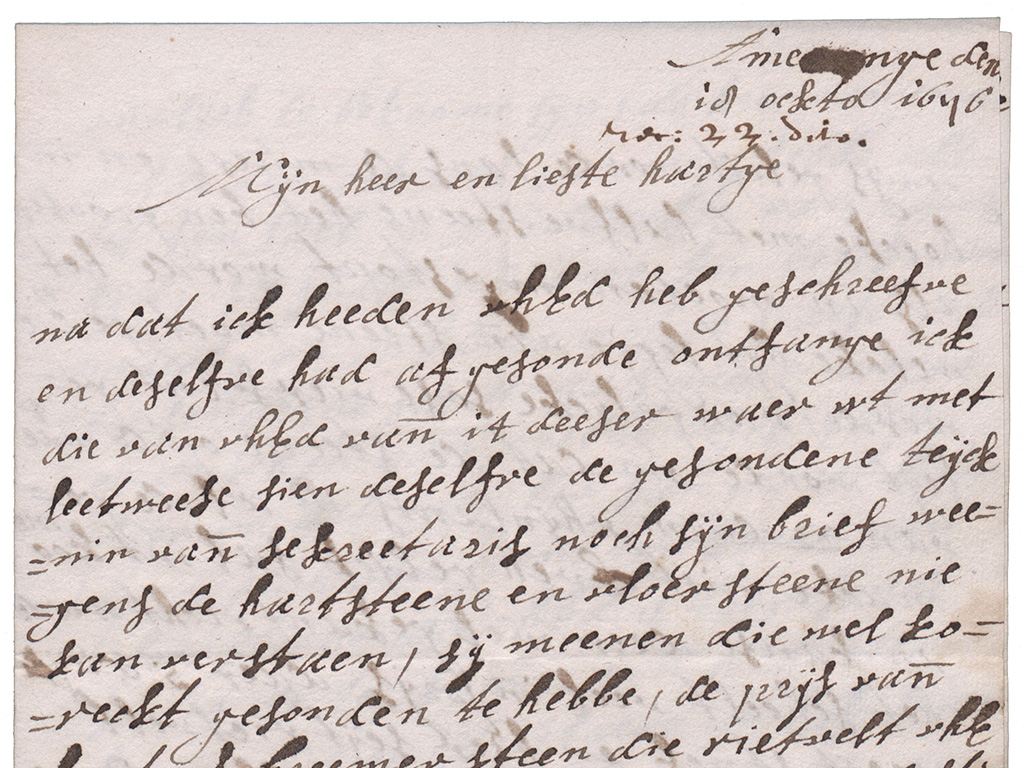 Ame nge den
18 ockto 1676
rec: 22. dito.
Mijn heer en lieste hartge
na dat ick heeden uhEd heb geschreefve
en deselfve had af gesonde ontfange ick
die van uhEd van̄ 17 deeser waer ut met
leetweese sien deselfve de gesondene teijck
=nin van̄ sekreetaris noch sijn brief wee=
=gens de hartsteene en vloer steene nie
kan verstaen, sij meenen die wel ko=
=reckt gesonden te hebbe, de prijs van̄
steen die rietvelt uhE